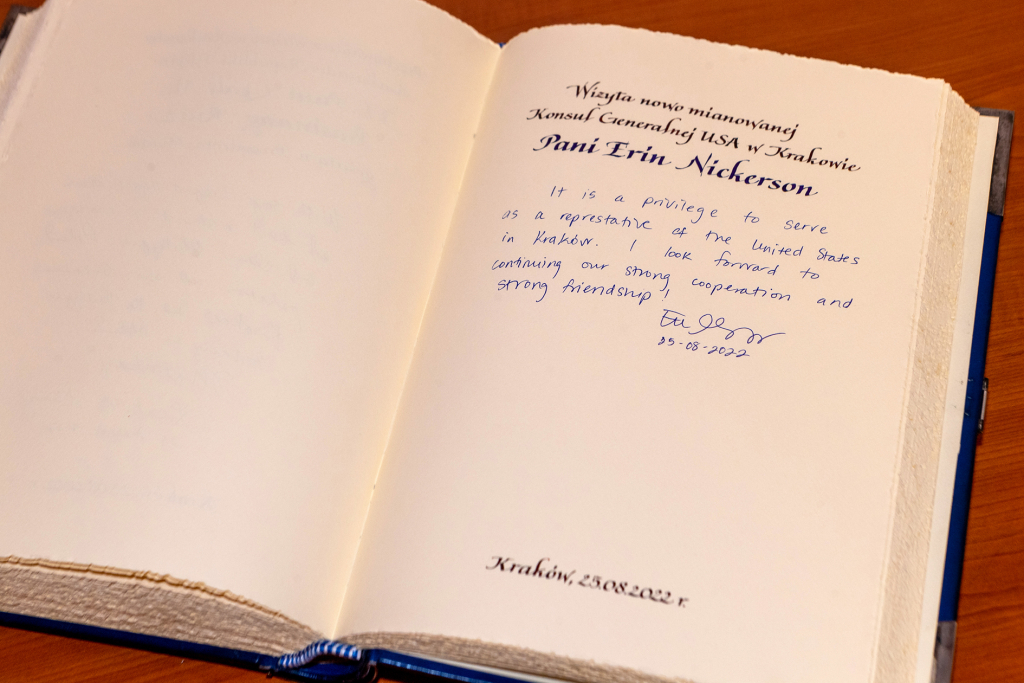 Wizyta nowo mianowanej
Konsul Generalnej USA w Krakowie
Pani Erin Nickerson
It is a privilege to serve
as a represtative of the United States
in Kraków. I look forward to
continuing our strong cooperation and
strong friendship!
25-08-2022
Kraków, 25.08.2022 r.